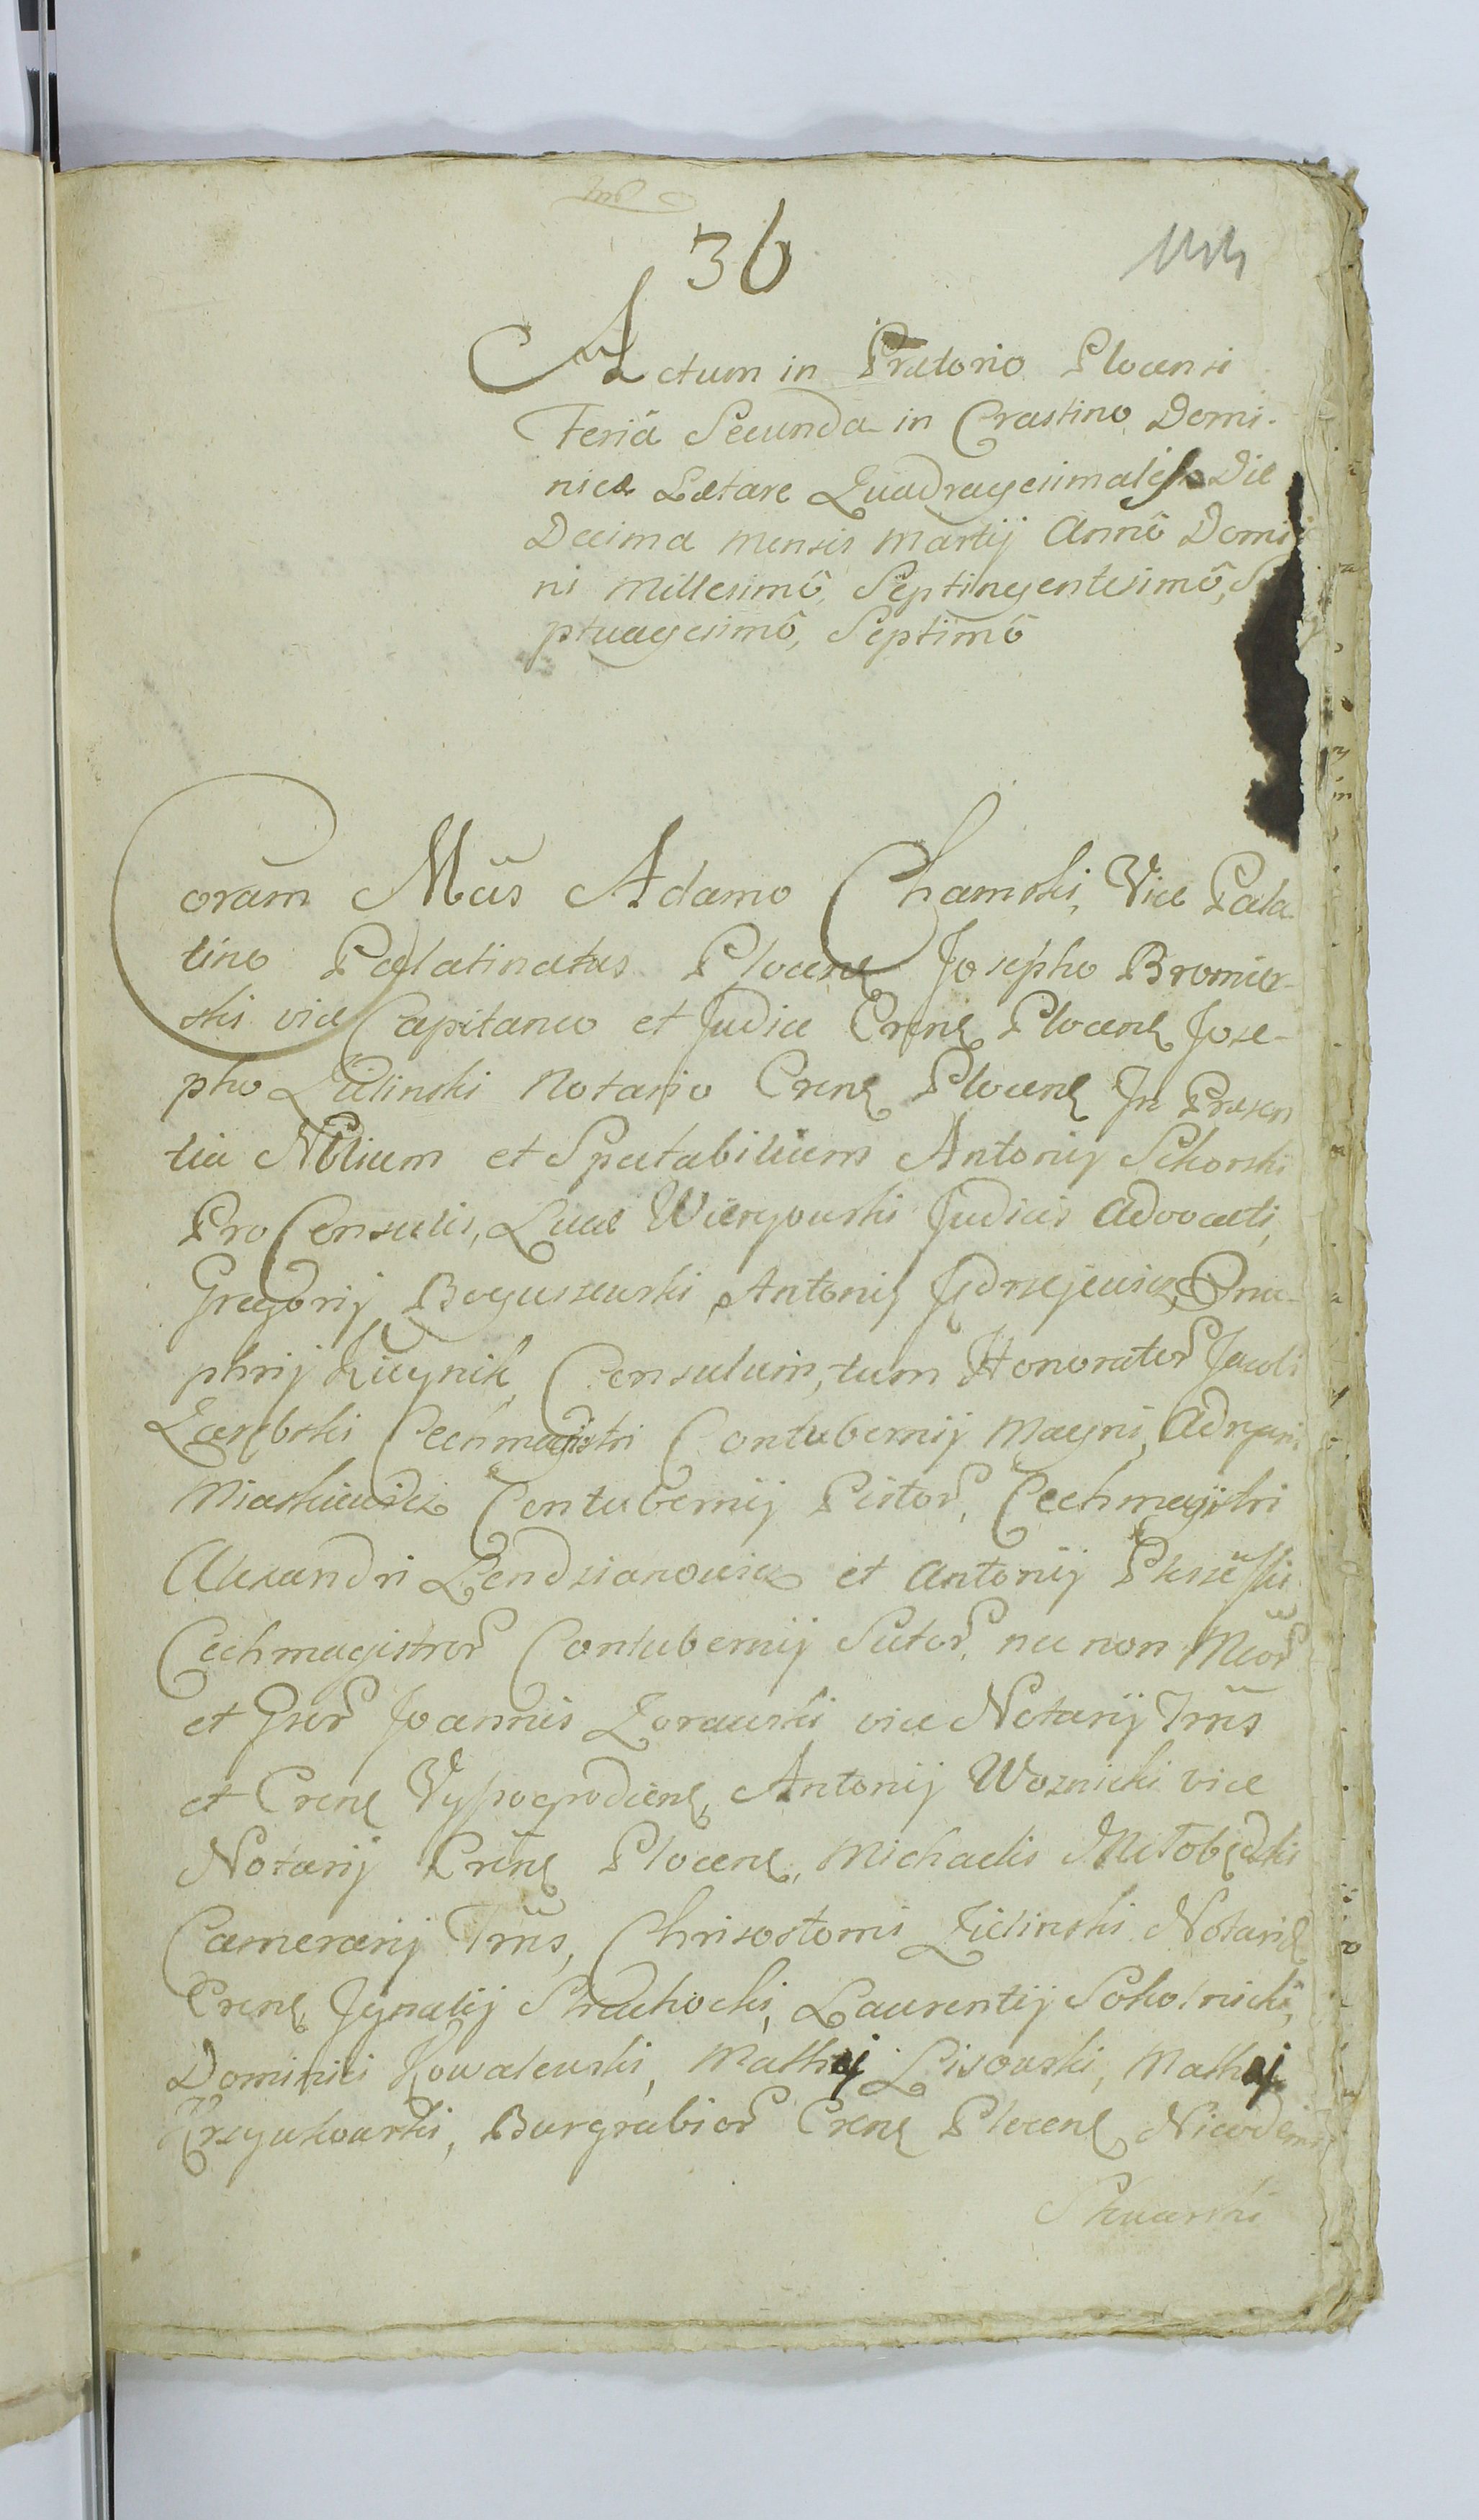 36
Actum in Prætorio Plocensi
Feriâ Secunda in Crastino Domi-
nicæ Lætare Quadragesimalis Die
Decima Mensis Martij Annô Domi
ni Millesimô, Septingentesimô, Se
ptuagesimô, Septimô
Coram Mcis Adamo Chamski, Vice Pala
tino Palatinatus Plocens Josepho Bromier-
ski vice Capitaneo et Judice Crens Plocens Jose-
pho Zielinski Notario Crens Plocens In Præsen
tia Nblium et Spectabilium Antonij Sikorski
Pro Consulis, Lucæ Wierzbowski Judicis Advocati,
Gregorij Boguszewski, Antonij Jędrzejewicz, Onu-
phrij Kuczynik, Consulum, tum Honorator Jacobi
Zarębski Cechmagistri Contubernij Magni, Adryani
Miaskiewicz Contubernij Pistor, Cechmagistri
Alexandri Lendzianowicz et Antonij
Cechmagistror Contubernij Sutor, nec non Mcor
et Gsor Joannis Zorawski vice Notarij Trris
et Crens Wyszogrodiens, Antonij Woznicki vice
Notarij Crens Plocens, Michaelis Miłobędzki
Camerarij Trris, Chrisostomi Zielinski Notarij
Crens, Ignatij Strachocki, Laurentij Sokolnicki,
Dominici Kowalewski, Mathej Lisowski, Mathej
Krzyukowski, Burgrabior Crens Plocens Nicodemi
Skwarski